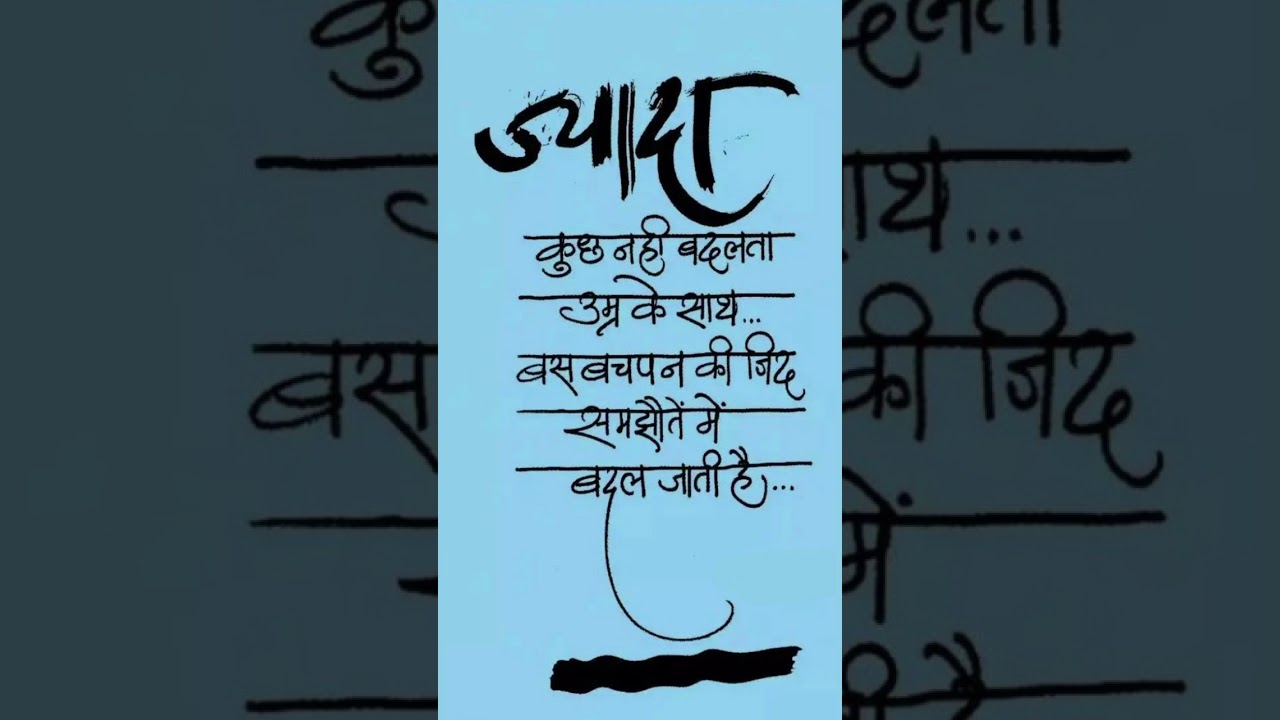 ज्यादा
कुछ नही बदलता
उम्र के साथ...
बस बचपन की जिद
समझौतें में
बदल जाती है...